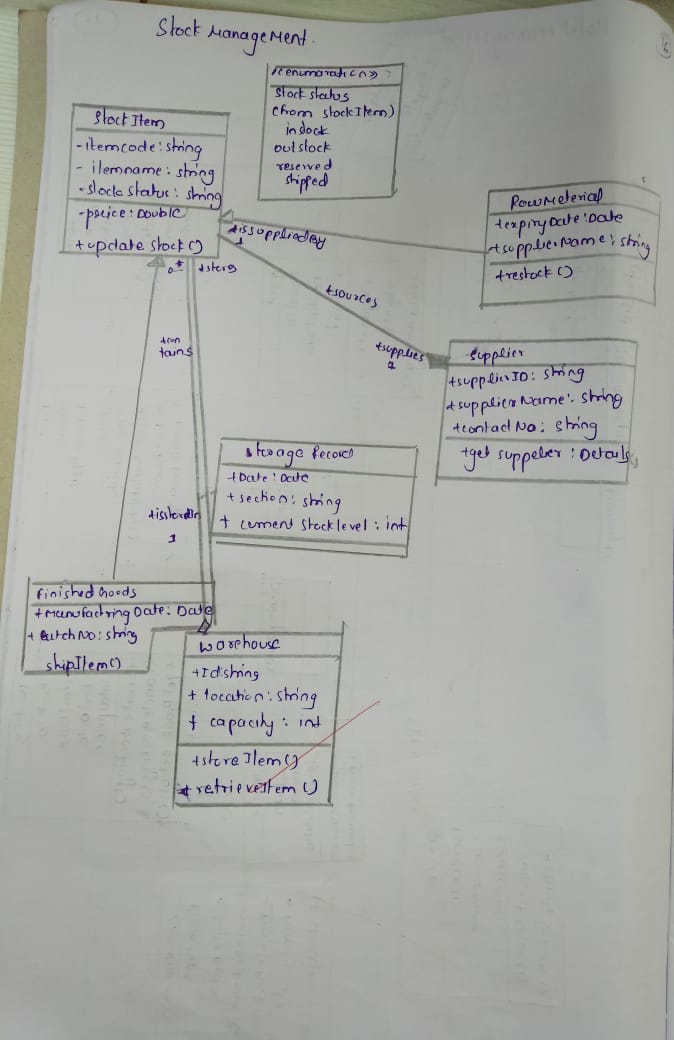 Stock Management.
<<enumoration>>
Stock status
(from stockItem)
instock
outstock
reserved
shipped
Stock Item
-itemcode: string
- itemname: string
-stock status: string
-price: Double
+update stock()
RawMeterial
+expiryDate: Date
+supplierName: string
+restock()
+issuppliedby
1
0..*
+stores
+sources
+con
tains
+supplies
1
Supplier
+supplierID: string
+supplierName: string
+contactNo: string
+get suppelier: Details
Storage Record
+Date: Date
+section: string
+ current stock level: int
+isstoredIn
1
Finished Goods
+Manufactring Date: Date
+ BatchNo: string
shipItem()
Warehouse
+Id:string
+ location: string
+ capacity: int
+storeItem()
+retrieveItem()